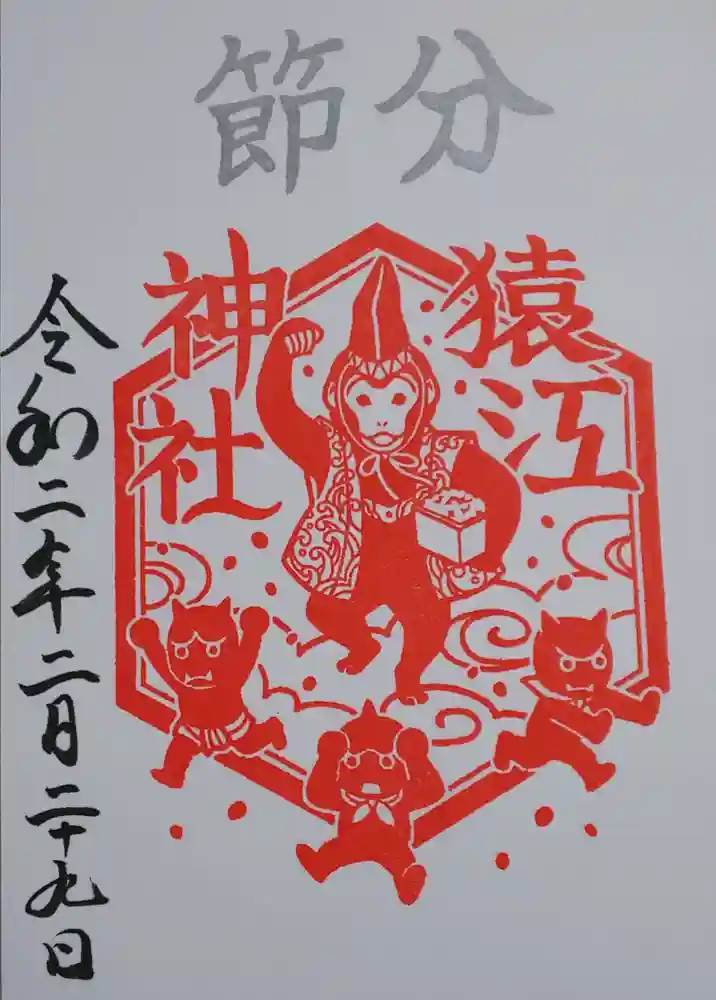 節分
猿江
神社
令和二年二月二十九日